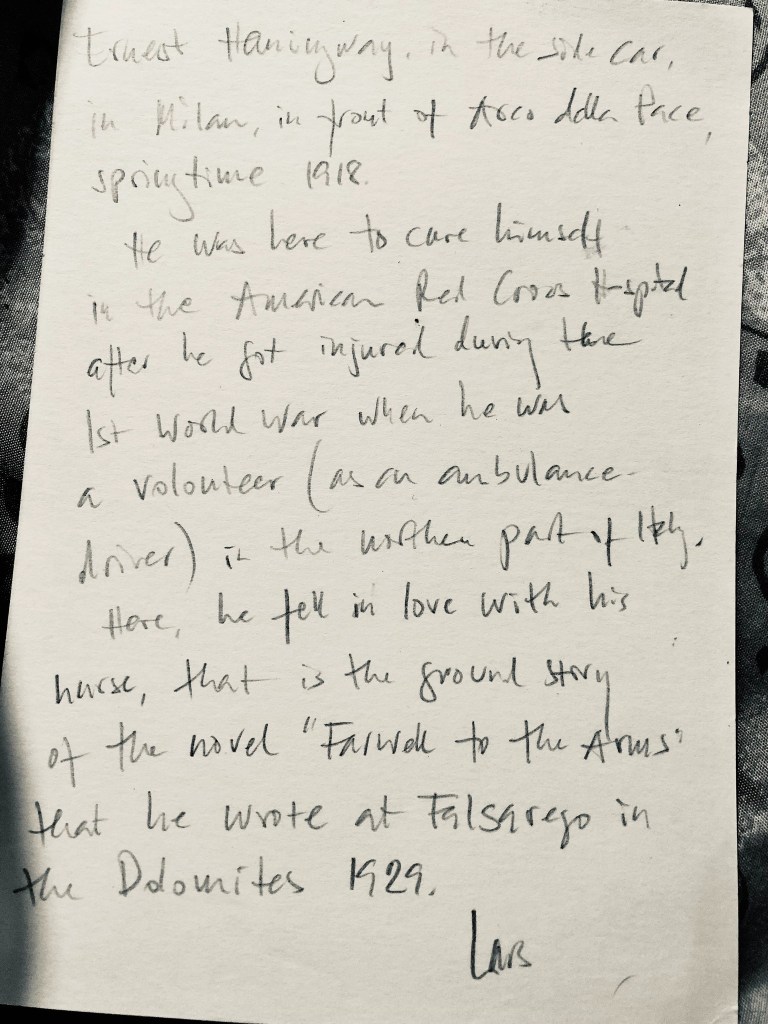 Ernest Hemingway, in the side car,
in Milan, in front of Arco della Pace,
springtime 1918.
He was here to cure himself
in the American Red Cross Hospital
after he got injured during the
1st World War when he was
a volonteer (as an ambulance-
driver) in the northen part of Italy.
Here, he fell in love with his
nurse, that is the ground story
of the novel "Farwell to the Arms"
that he wrote at Falsarego in
the Dolomites 1929.
Lars